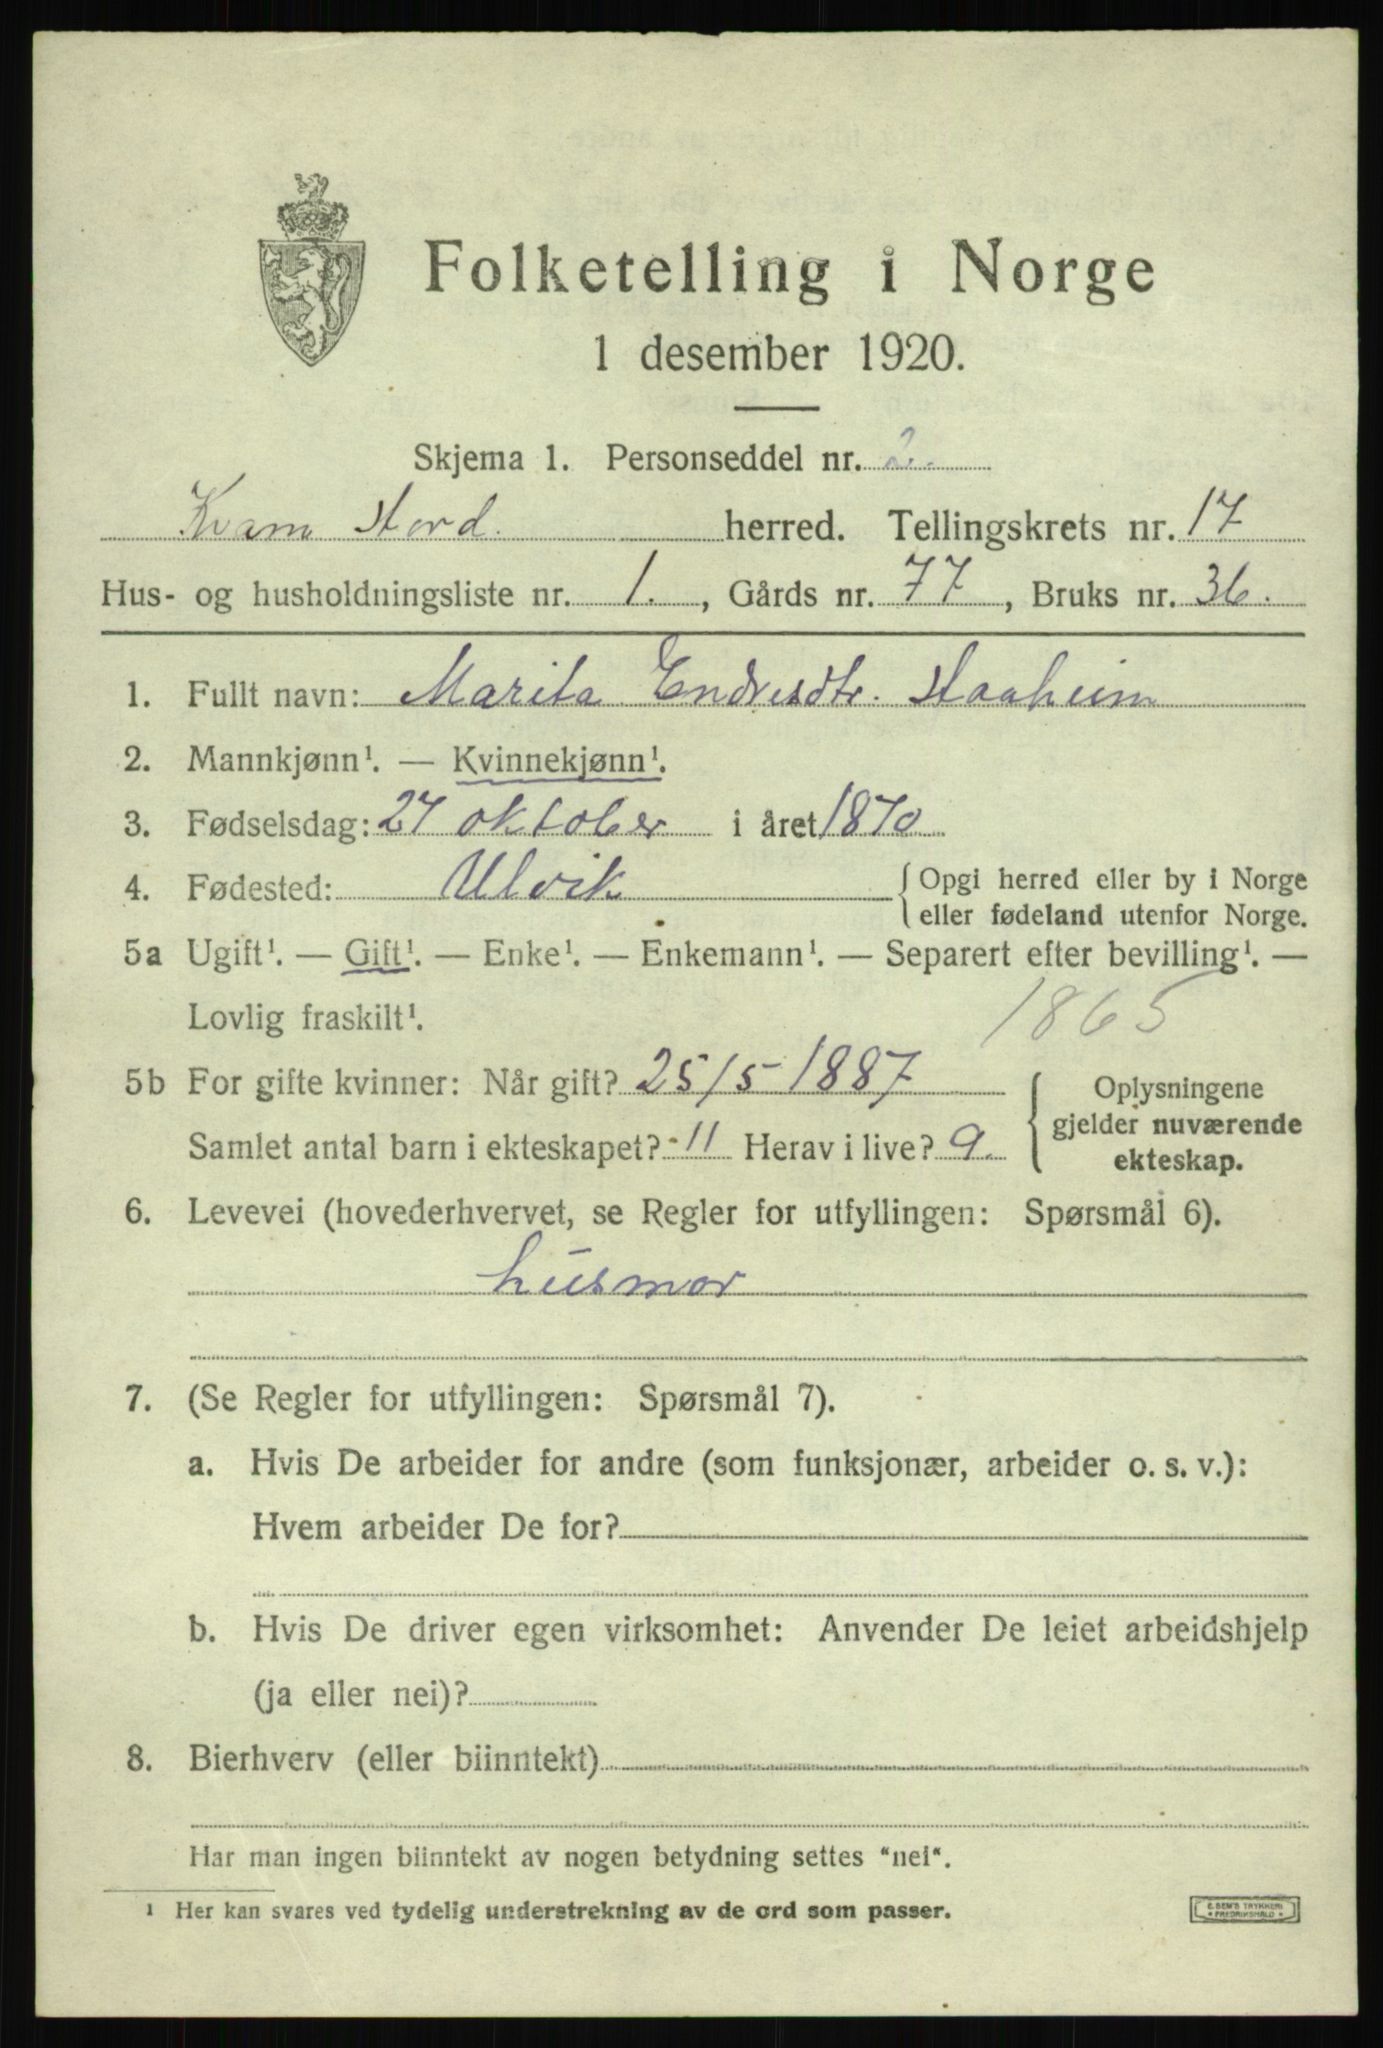 Folketelling i Norge
1 desember 1920.
Skjema 1. Personseddel nr. 2.
Kvam Stord. herred. Tellingskrets nr. 17
Hus- og husholdningsliste nr. 1., Gårds nr. 77, Bruks nr. 36.
1. Fullt navn: Marita Endresdtr. Staaheim
2. Mannkjønn¹. — Kvinnekjønn¹.
3. Fødselsdag: 27 oktober i året 1870
4. Fødested: Ulvik { Opgi herred eller by i Norge
eller fødeland utenfor Norge.
5a Ugift¹. — Gift¹. — Enke¹. — Enkemann¹. — Separert efter bevilling¹. —
Lovlig fraskilt¹. 1865
5b For gifte kvinner: Når gift? 25/5 1887 { Oplysningene
gjelder nuværende
ekteskap.
Samlet antal barn i ekteskapet? 11 Herav i live? 9.
6. Levevei (hovederhvervet, se Regler for utfyllingen: Spørsmål 6).
husmor
7. (Se Regler for utfyllingen: Spørsmål 7).
a. Hvis De arbeider for andre (som funksjonær, arbeider o. s. v.):
Hvem arbeider De for?
b. Hvis De driver egen virksomhet: Anvender De leiet arbeidshjelp
(ja eller nei)?
8. Bierhverv (eller biinntekt)
Har man ingen biinntekt av nogen betydning settes "nei".
¹ Her kan svares ved tydelig understrekning av de ord som passer.
E. SEM'S TRYKKERI
* FREDRIKSHALD *